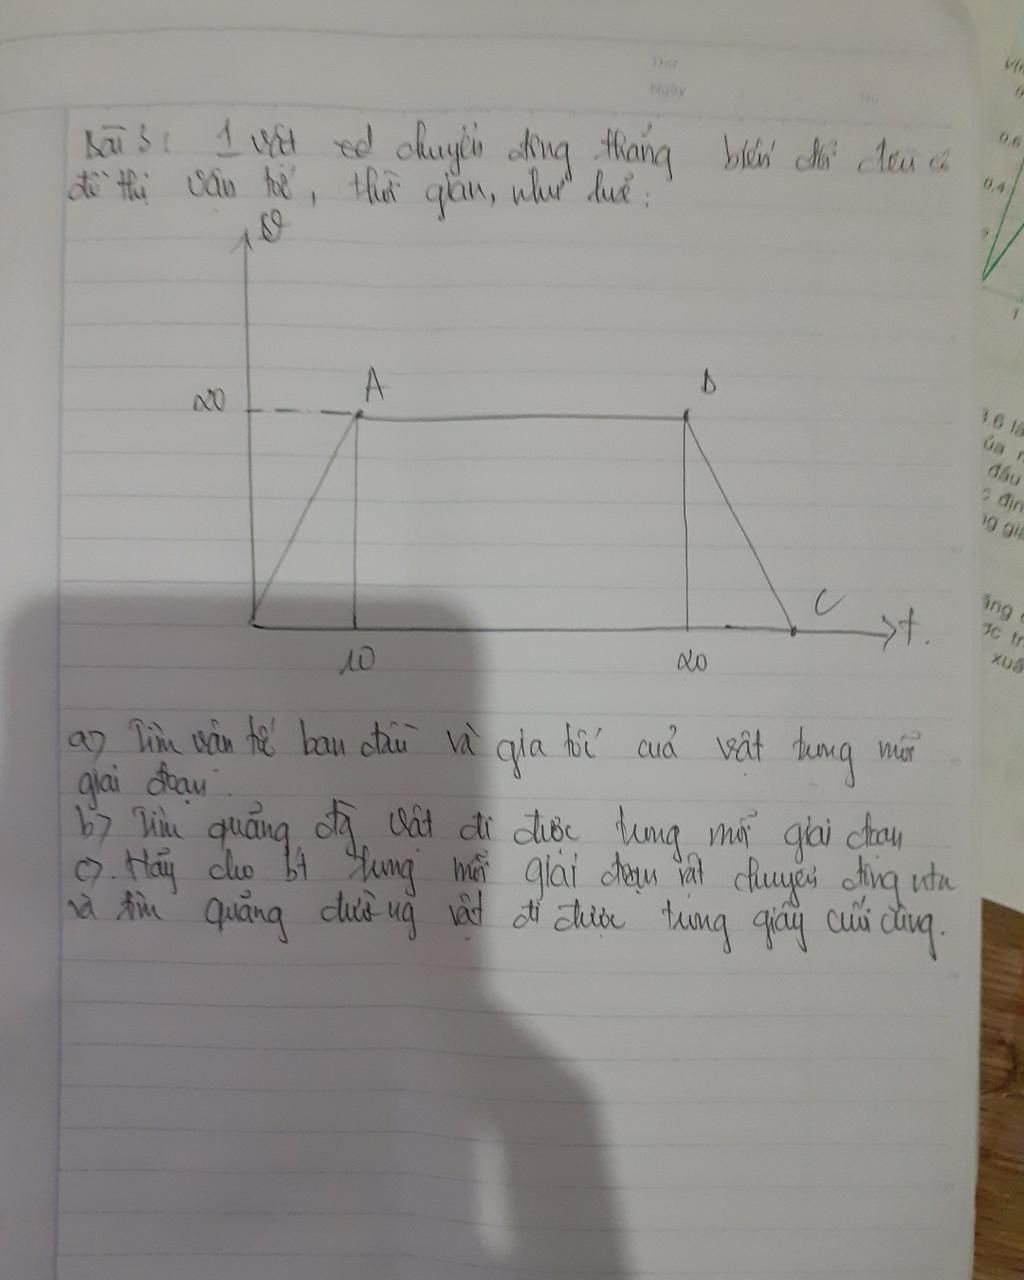 Thứ
Ngày
No
Bài 3: 1 vật cđ chuyển động thẳng biến đổi đều có
đồ thị vận tốc, thời gian, như hvẽ:
v
20
A
B
C
t.
10
20
a) Tìm vận tốc ban đầu và gia tốc của vật trong mỗi
giai đoạn.
b) Tìm quảng đg vật đi được trong mỗi giai đoạn
c). Hãy cho bt trong mỗi giai đoạn vật chuyển động ntn
và tìm quảng đường vật đi được trong giây cuối cùng.
0,6
0,4
1
3.6
của
đầu
địn
xuấ